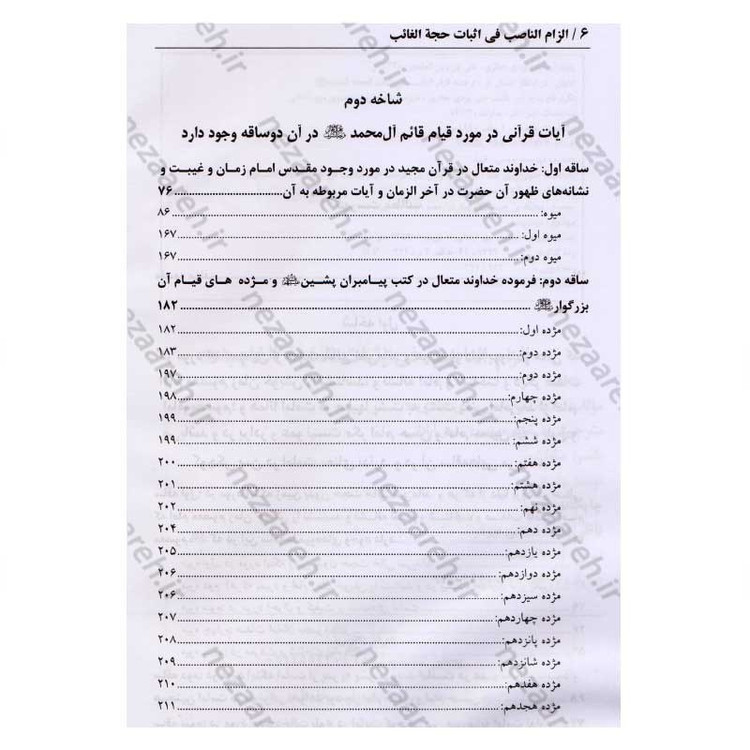 ۶ / الزام الناصب فی اثبات حجة الغائب
شاخه دوم
آیات قرآنی در مورد قیام قائم آل‌محمد ﷺ در آن دوساقه وجود دارد
ساقه اول: خداوند متعال در قرآن مجید در مورد وجود مقدس امام زمان و غیبت و
نشانه‌های ظهور آن حضرت در آخر الزمان و آیات مربوطه به آن ........ ۷۶
میوه: ........ ۸۶
میوه اول: ........ ۱۶۷
میوه دوم: ........ ۱۶۷
ساقه دوم: فرموده خداوند متعال در کتب پیامبران پشین و مژده های قیام آن
بزرگوار ........ ۱۸۲
مژده اول: ........ ۱۸۲
مژده دوم: ........ ۱۸۳
مژده دوم: ........ ۱۹۷
مژده چهارم: ........ ۱۹۸
مژده پنجم: ........ ۱۹۹
مژده ششم: ........ ۱۹۹
مژده هفتم: ........ ۲۰۰
مژده هشتم: ........ ۲۰۱
مژده نهم: ........ ۲۰۲
مژده دهم: ........ ۲۰۴
مژده یازدهم: ........ ۲۰۵
مژده دوازدهم: ........ ۲۰۶
مژده سیزدهم: ........ ۲۰۶
مژده چهاردهم: ........ ۲۰۷
مژده پانزدهم: ........ ۲۰۸
مژده شانزدهم: ........ ۲۰۹
مژده هفدهم: ........ ۲۱۰
مژده هجدهم: ........ ۲۱۱
nezaareh.ir